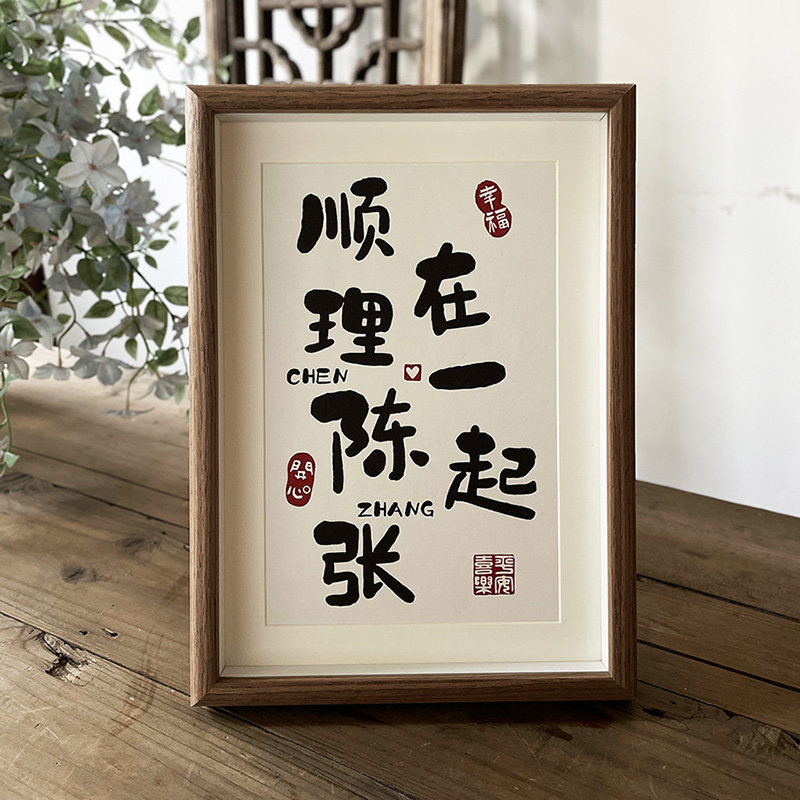 顺理陈张
CHEN
ZHANG
在一起
幸福
開心
平安喜樂